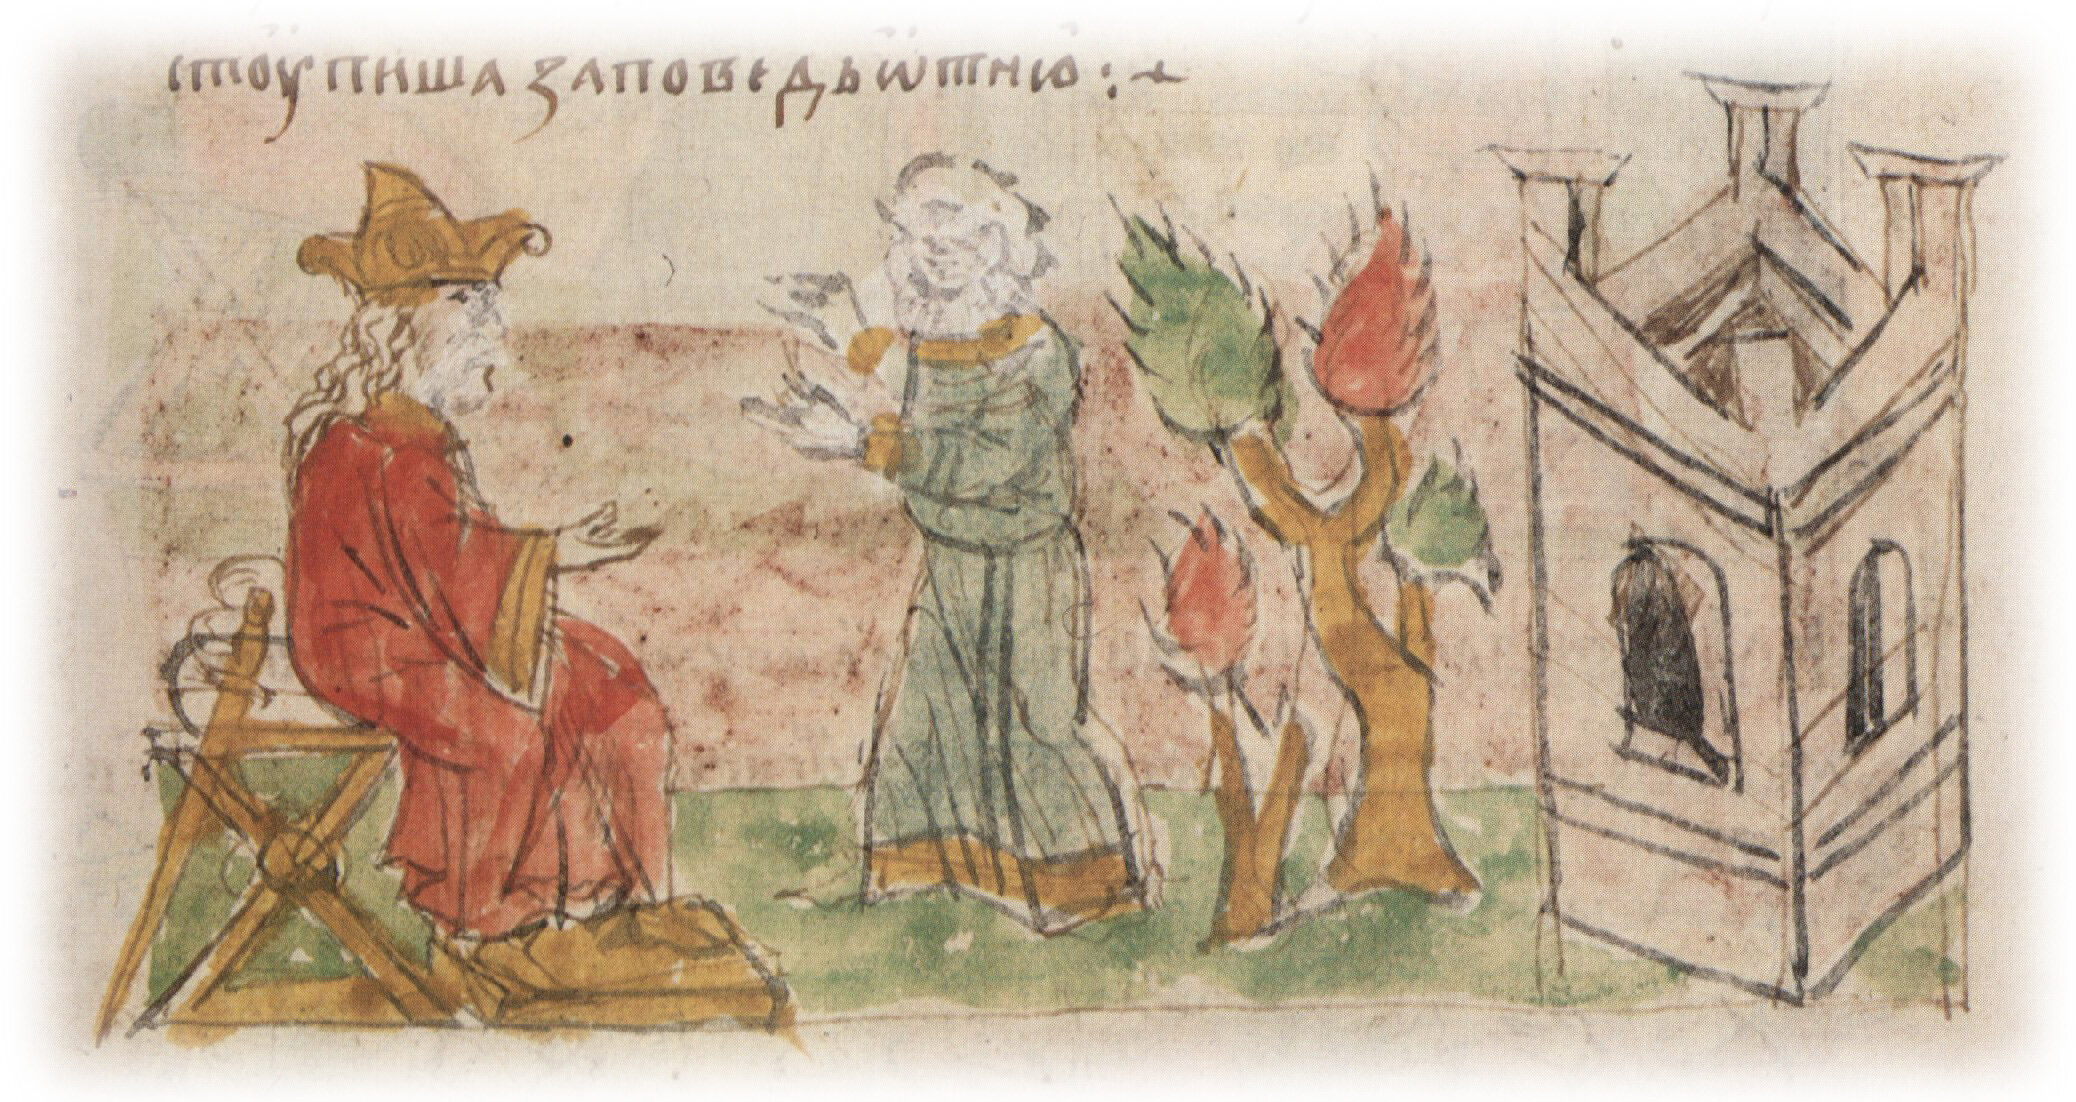 стоупиша заповедь ѡт нею :+